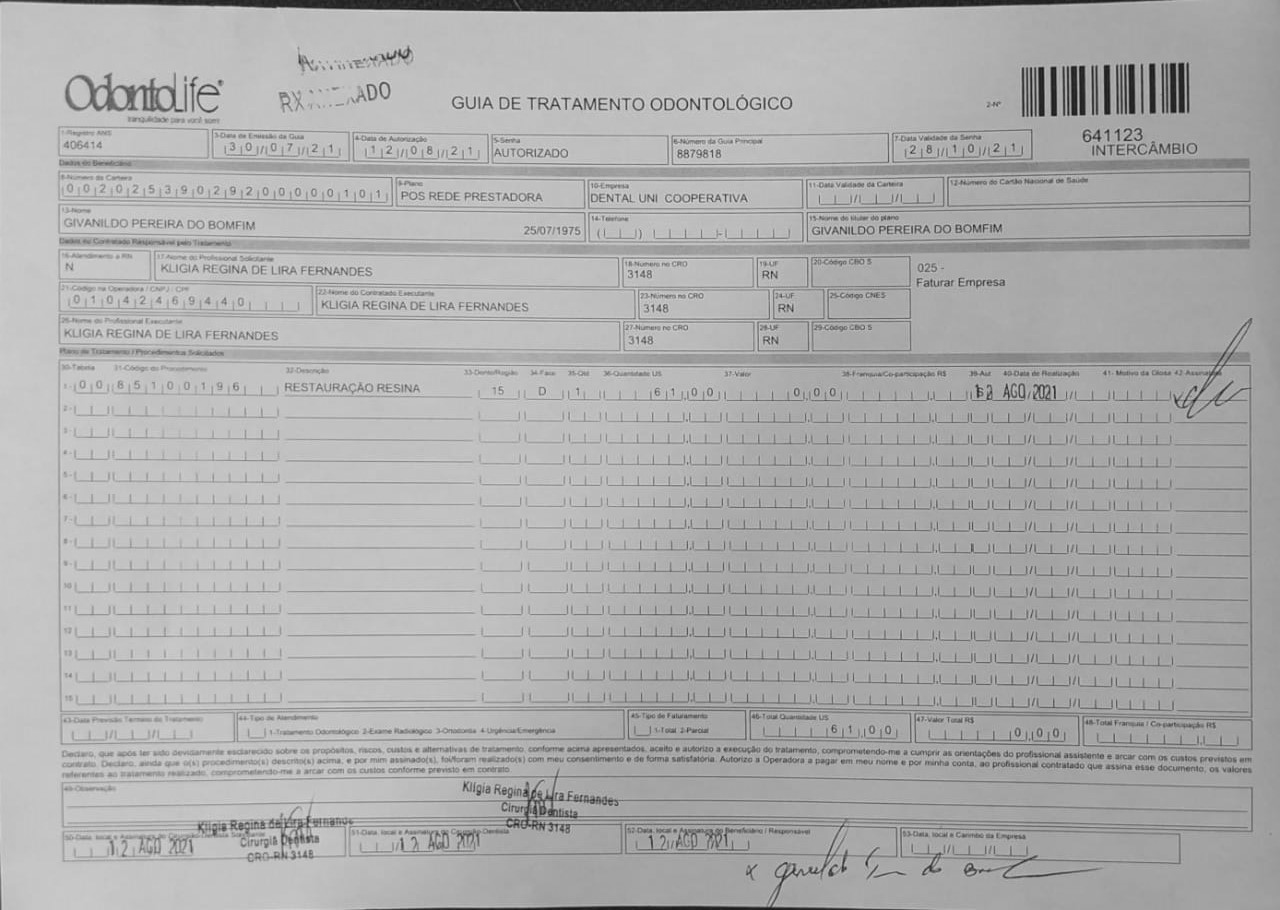 OdontoLife
tranquilidade para você sorrir
GUIA DE TRATAMENTO ODONTOLÓGICO
2-Nº
641123
INTERCÂMBIO
1-Registro ANS
406414
3-Data de Emissão da Guia
30/07/21
4-Data de Autorização
12/08/21
5-Senha
AUTORIZADO
6-Número da Guia Principal
8879818
7-Data Validade da Senha
28/10/21
Dados do Beneficiário
8-Número da Carteira
00202539029200000101
9-Plano
POS REDE PRESTADORA
10-Empresa
DENTAL UNI COOPERATIVA
11-Data Validade da Carteira
12-Número do Cartão Nacional de Saúde
13-Nome
GIVANILDO PEREIRA DO BOMFIM
25/07/1975
14-Telefone
15-Nome do titular do plano
GIVANILDO PEREIRA DO BOMFIM
Dados do Contratado Responsável pelo Tratamento
16-Atendimento a RN
N
17-Nome do Profissional Solicitante
KLIGIA REGINA DE LIRA FERNANDES
18-Número no CRO
3148
19-UF
RN
20-Código CBO S
025 -
Faturar Empresa
21-Código na Operadora / CNPJ / CPF
01042469440
22-Nome do Contratado Executante
KLIGIA REGINA DE LIRA FERNANDES
23-Número no CRO
3148
24-UF
RN
25-Código CNES
26-Nome do Profissional Executante
KLIGIA REGINA DE LIRA FERNANDES
27-Número no CRO
3148
28-UF
RN
29-Código CBO S
Plano de Tratamento / Procedimentos Solicitados
30-Tabela 31-Código do Procedimento 32-Descrição 33-Dente/Região 34-Face 35-Qtd 36-Quantidade US 37-Valor 38-Franquia/Co-participação R$ 39-Aut 40-Data de Realização 41- Motivo da Glosa 42-Assinatura
1- 00 85100196 RESTAURAÇÃO RESINA 15 D 1 61,00 0,00 12 AGO 2021
2-
3-
4-
5-
6-
7-
8-
9-
10
11
12
13
14
15
43-Data Previsão Termino do Tratamento
44-Tipo de Atendimento
1-Tratamento Odontológico 2-Exame Radiológico 3-Ortodontia 4-Urgência/Emergência
45-Tipo de Faturamento
1-Total 2-Parcial
46-Total Quantidade US
61,00
47-Valor Total R$
0,00
48-Total Franquia / Co-participação R$
Declaro, que após ter sido devidamente esclarecido sobre os propósitos, riscos, custos e alternativas de tratamento, conforme acima apresentados, aceito e autorizo a execução do tratamento, comprometendo-me a cumprir as orientações do profissional assistente e arcar com os custos previstos em
contrato. Declaro, ainda que o(s) procedimento(s) descrito(s) acima, e por mim assinado(s), foi/foram realizado(s) com meu consentimento e de forma satisfatória. Autorizo a Operadora a pagar em meu nome e por minha conta, ao profissional contratado que assina esse documento, os valores
referentes ao tratamento realizado, comprometendo-me a arcar com os custos conforme previsto em contrato.
49-Observação
Klígia Regina de Lira Fernandes
Cirurgiã Dentista
CRO-RN 3148
50-Data, local e Assinatura do Cirurgião-Dentista Solicitante
12 AGO 2021
Klígia Regina de Lira Fernandes
Cirurgiã Dentista
CRO-RN 3148
51-Data, local e Assinatura do Cirurgião-Dentista
12 AGO 2021
52-Data, local e Assinatura do Beneficiário / Responsável
12 AGO 2021
53-Data, local e Carimbo da Empresa